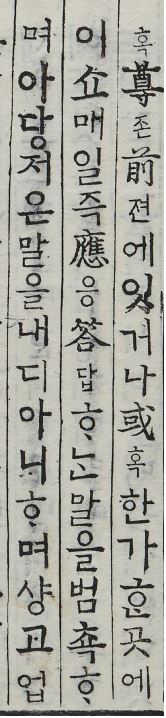 혹尊존前젼에잇거나或혹한가ᄒᆞᆫ곳에
이쇼매일즉應응答답ᄒᆞᄂᆞᆫ말을범쵹ᄒᆞ
며아당저은말을내디아니ᄒᆞ며샹고업